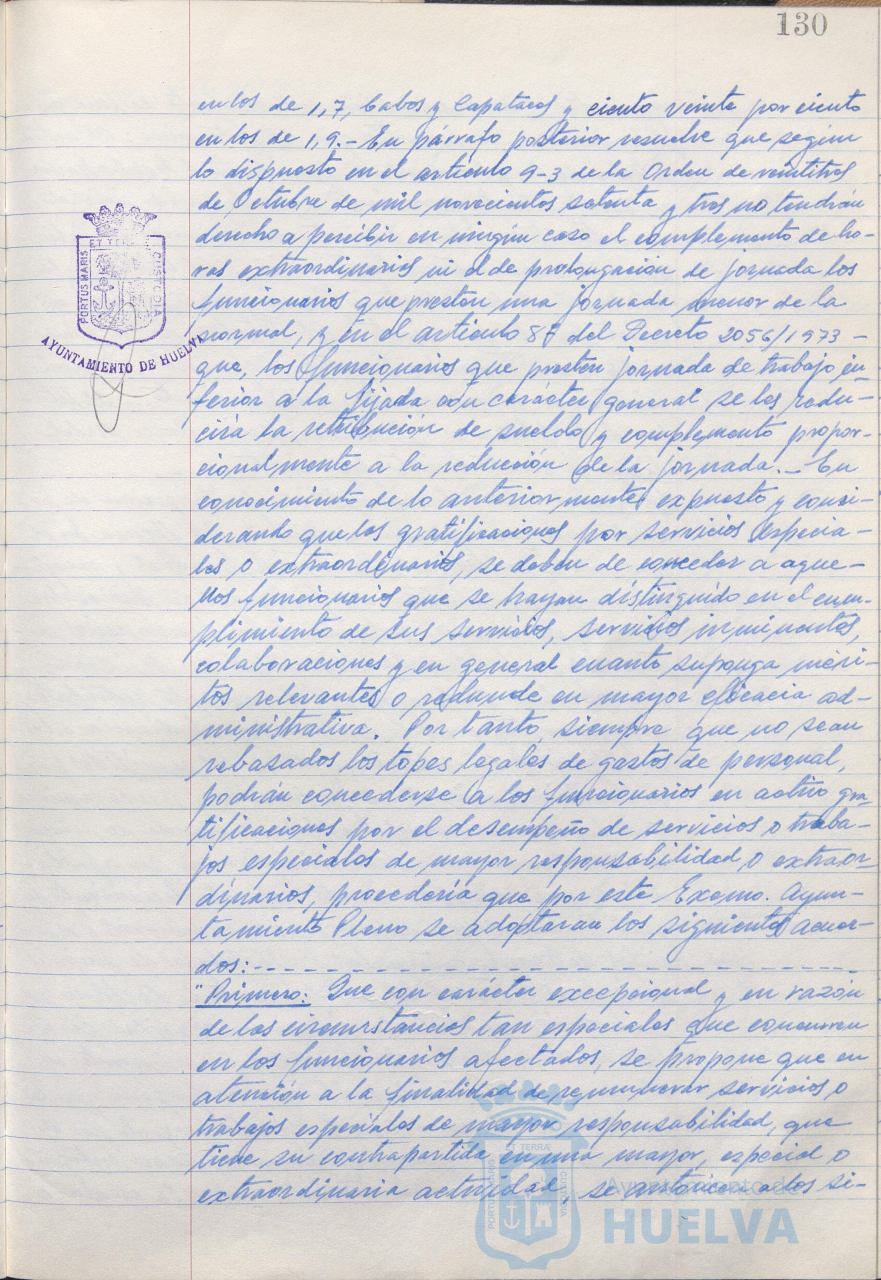 130
en los de 1,7, Cabos y Capataces y ciento veinte por ciento
en los de 1,9.- En párrafo posterior resuelve que según
lo dispuesto en el artículo 9-3 de la Orden de veintitres
de Octubre de mil novecientos setenta y tres no tendrán
derecho a percibir en ningún caso el complemento de ho-
ras extraordinarias ni el de prolongación de jornada los
funcionarios que presten una jornada menor de la
normal, y en el artículo 8º del Decreto 2056/1973 -
que, los funcionarios que presten jornada de trabajo in
ferior a la fijada con carácter general se les redu-
cirá la retribución de sueldo y complemento propor-
cionalmente a la reducción de la jornada.- En
conocimiento de lo anteriormente expuesto y consi-
derando que las gratificaciones por servicios especia-
les o extraordinarios, se deben de conceder a aque-
llos funcionarios que se hayan distinguido en el cum-
plimiento de sus servicios, servicios inminentes,
colaboraciones y en general cuanto suponga méri-
tos relevantes o redunde en mayor eficacia ad-
ministrativa. Por tanto, siempre que no sean
rebasados los topes legales de gastos de personal,
podrán concederse a los funcionarios en activo gra-
tificaciones por el desempeño de servicios o traba-
jos especiales de mayor responsabilidad, o extraor-
dinarios, procedería que por este Excmo. Ayun-
tamiento Pleno se adoptaran los siguientes acuer-
dos:- - - - - - - - - - - - - - - - - - - - - - - -
"Primero: Que con carácter excepcional y en razón
de las circunstancias tan especiales que concurren
en los funcionarios afectados, se propone que en
atención a la finalidad de remunerar servicios o
trabajos especiales de mayor responsabilidad, que
tiene su contrapartida en una mayor, especial o
extraordinaria actividad, se autorice a los si-
PORTUS MARIS ET TERRAE CUSTODIA
AYUNTAMIENTO DE HUELVA
PORTUS MARIS ET TERRAE CUSTODIA
Ayuntamiento de
HUELVA